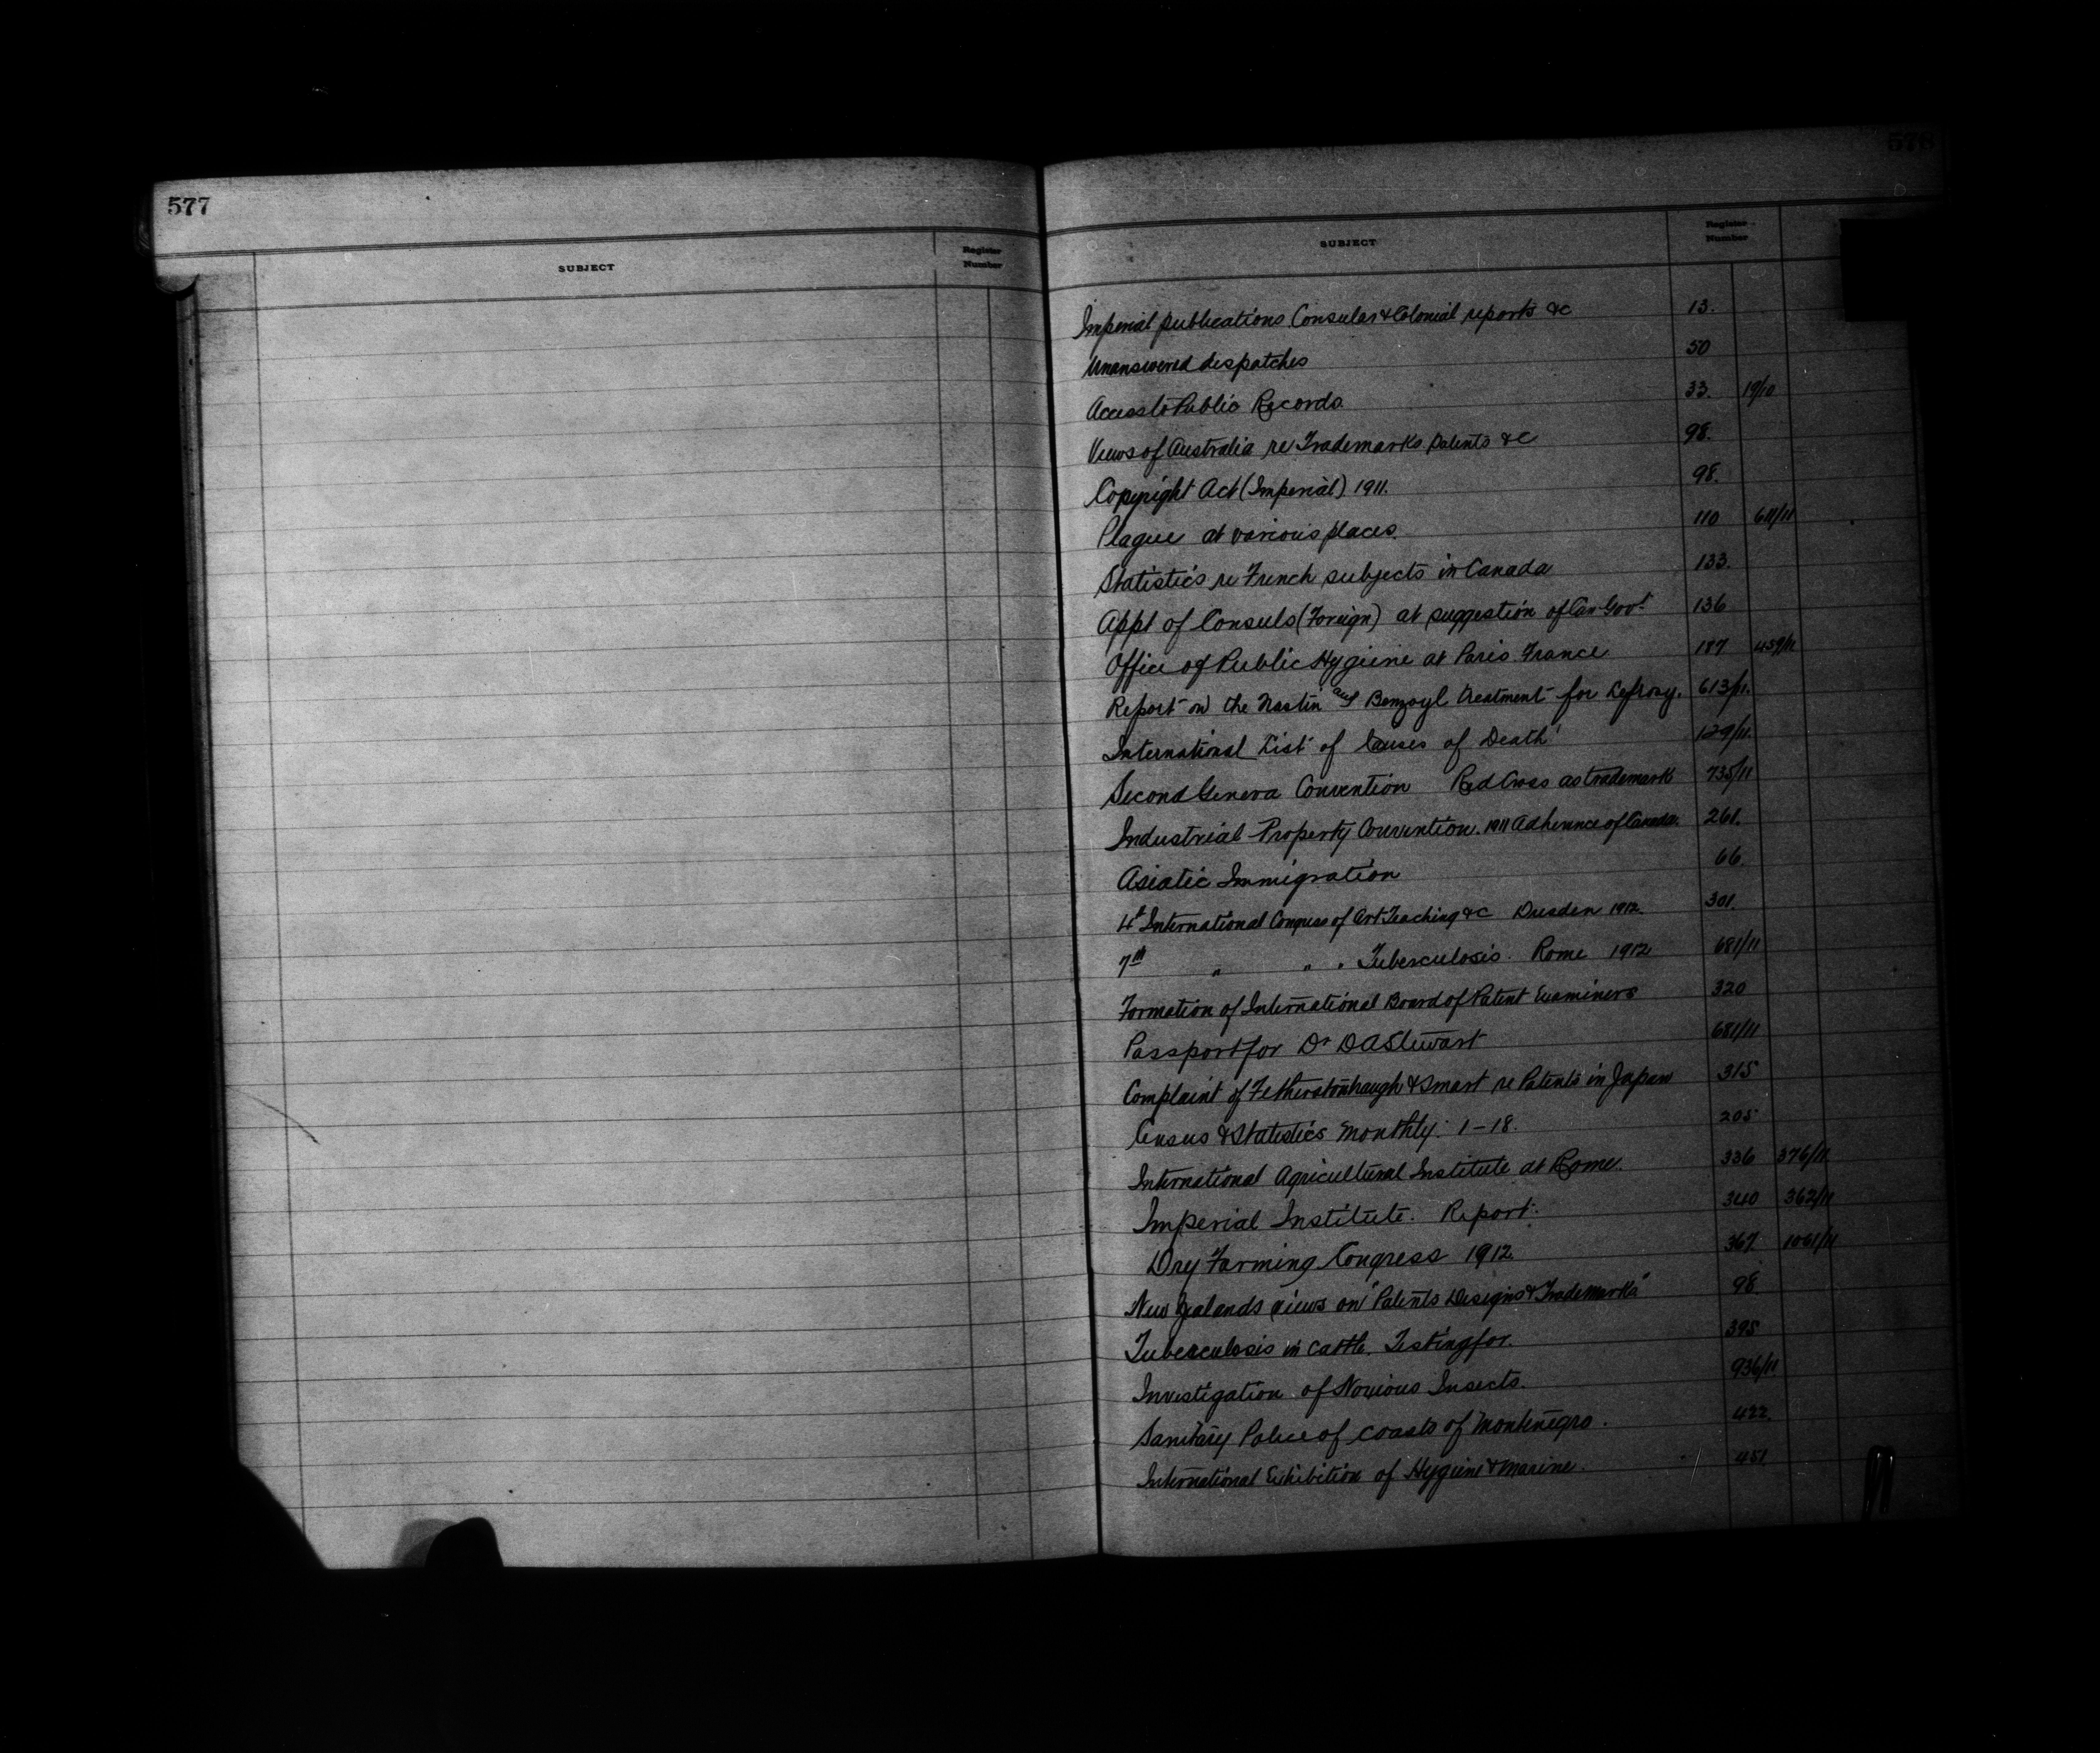 577
SUBJECT
Register
Number
576
SUBJECT
Register
Number
Imperial publications Consular & Colonial reports &c 13.
Unanswered despatches 50
Access to Public Records 33. 19/10
Views of Australia re Trademarks Patents &c 98.
Copyright Act (Imperial) 1911. 98.
Plague at various places. 110 611/11
Statistics re French subjects in Canada 133.
Appt of Consuls (Foreign) at suggestion of Can Govt 136
Office of Public Hygiene at Paris France 187 459/11
Report on the Nastin and Benzoyl treatment for Leprosy. 613/11.
International List of Causes of Death 129/11.
Second Geneva Convention Red Cross as trademark 735/11
Industrial Property Convention. 1911 Adherence of Canada. 261.
Asiatic Immigration 66.
4th International Congress of Art Teaching &c Dresden 1912. 301.
7th " " " Tuberculosis. Rome 1912 681/11
Formation of International Board of Patent Examiners 320
Passport for Dr D A Stewart 681/11
Complaint of Fetherstonhaugh & Smart re Patents in Japan 315
Census & Statistics Monthly. 1-18. 205
International Agricultural Institute at Rome. 336 376/11
Imperial Institute. Report. 340 362/11
Dry Farming Congress 1912 367. 1061/11
New Zealands views on "Patents Designs & Trademarks" 98
Tuberculosis in cattle. Testing for. 395
Investigation of Noxious Insects. 936/11
Sanitary Police of coasts of Montenegro. 422.
International Exhibition of Hygiene & Marine. 451